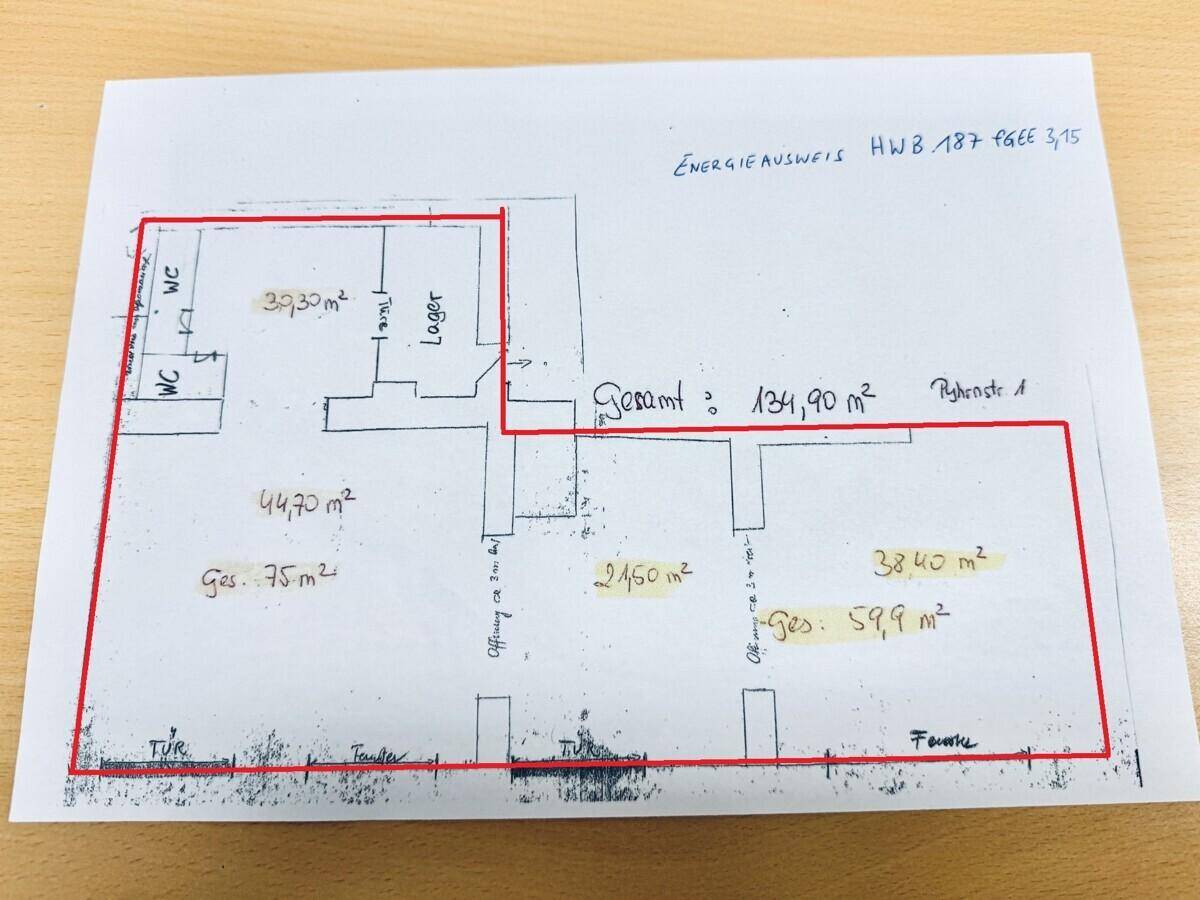 ENERGIEAUSWEIS HWB 187 fGEE 3,15
WC
30,30 m²
Türe
Lager
WC
Gesamt : 134,90 m²
Pyhrnstr. 1
44,70 m²
Ges. 75 m²
Öffnung ca 3 m
21,50 m²
ca 3 m
38,40 m²
Ges: 59,9 m²
TÜR
Fenster
TÜR
Fenster